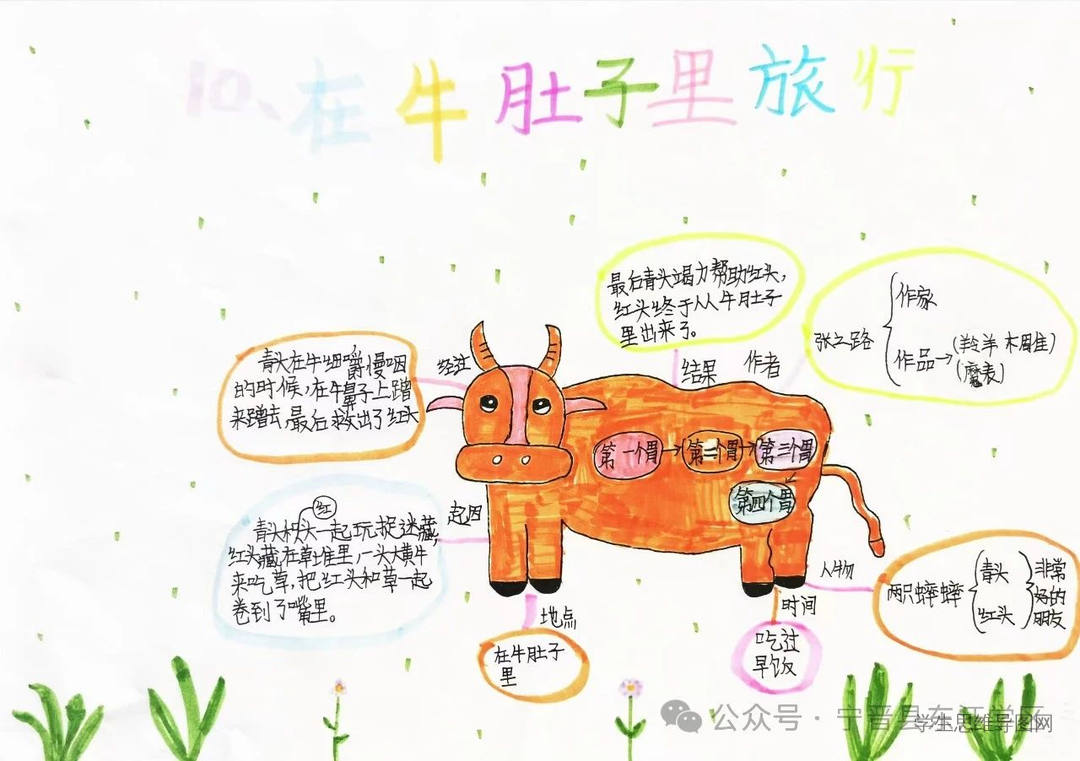 10、在牛肚子里旅行
最后青头竭力帮助红头，
红头终于从牛肚子
里出来了。
结果
作者
张之路
作家
作品→(羚羊木雕)
(魔表)
经过
青头在牛细嚼慢咽
的时候，在牛鼻子上蹭
来蹭去，最后救出了红头
第一个胃→第二个胃→第三个胃
第四个胃
起因
红
青头和头一起玩捉迷藏，
红头藏在草堆里，一头大黄牛
来吃草，把红头和草一起
卷到了嘴里。
地点
在牛肚子
里
时间
吃过
早饭
人物
两只蟋蟀
青头
红头
非常
好的
朋友
公众号·宁晋县东汪学区
学生思维导图网